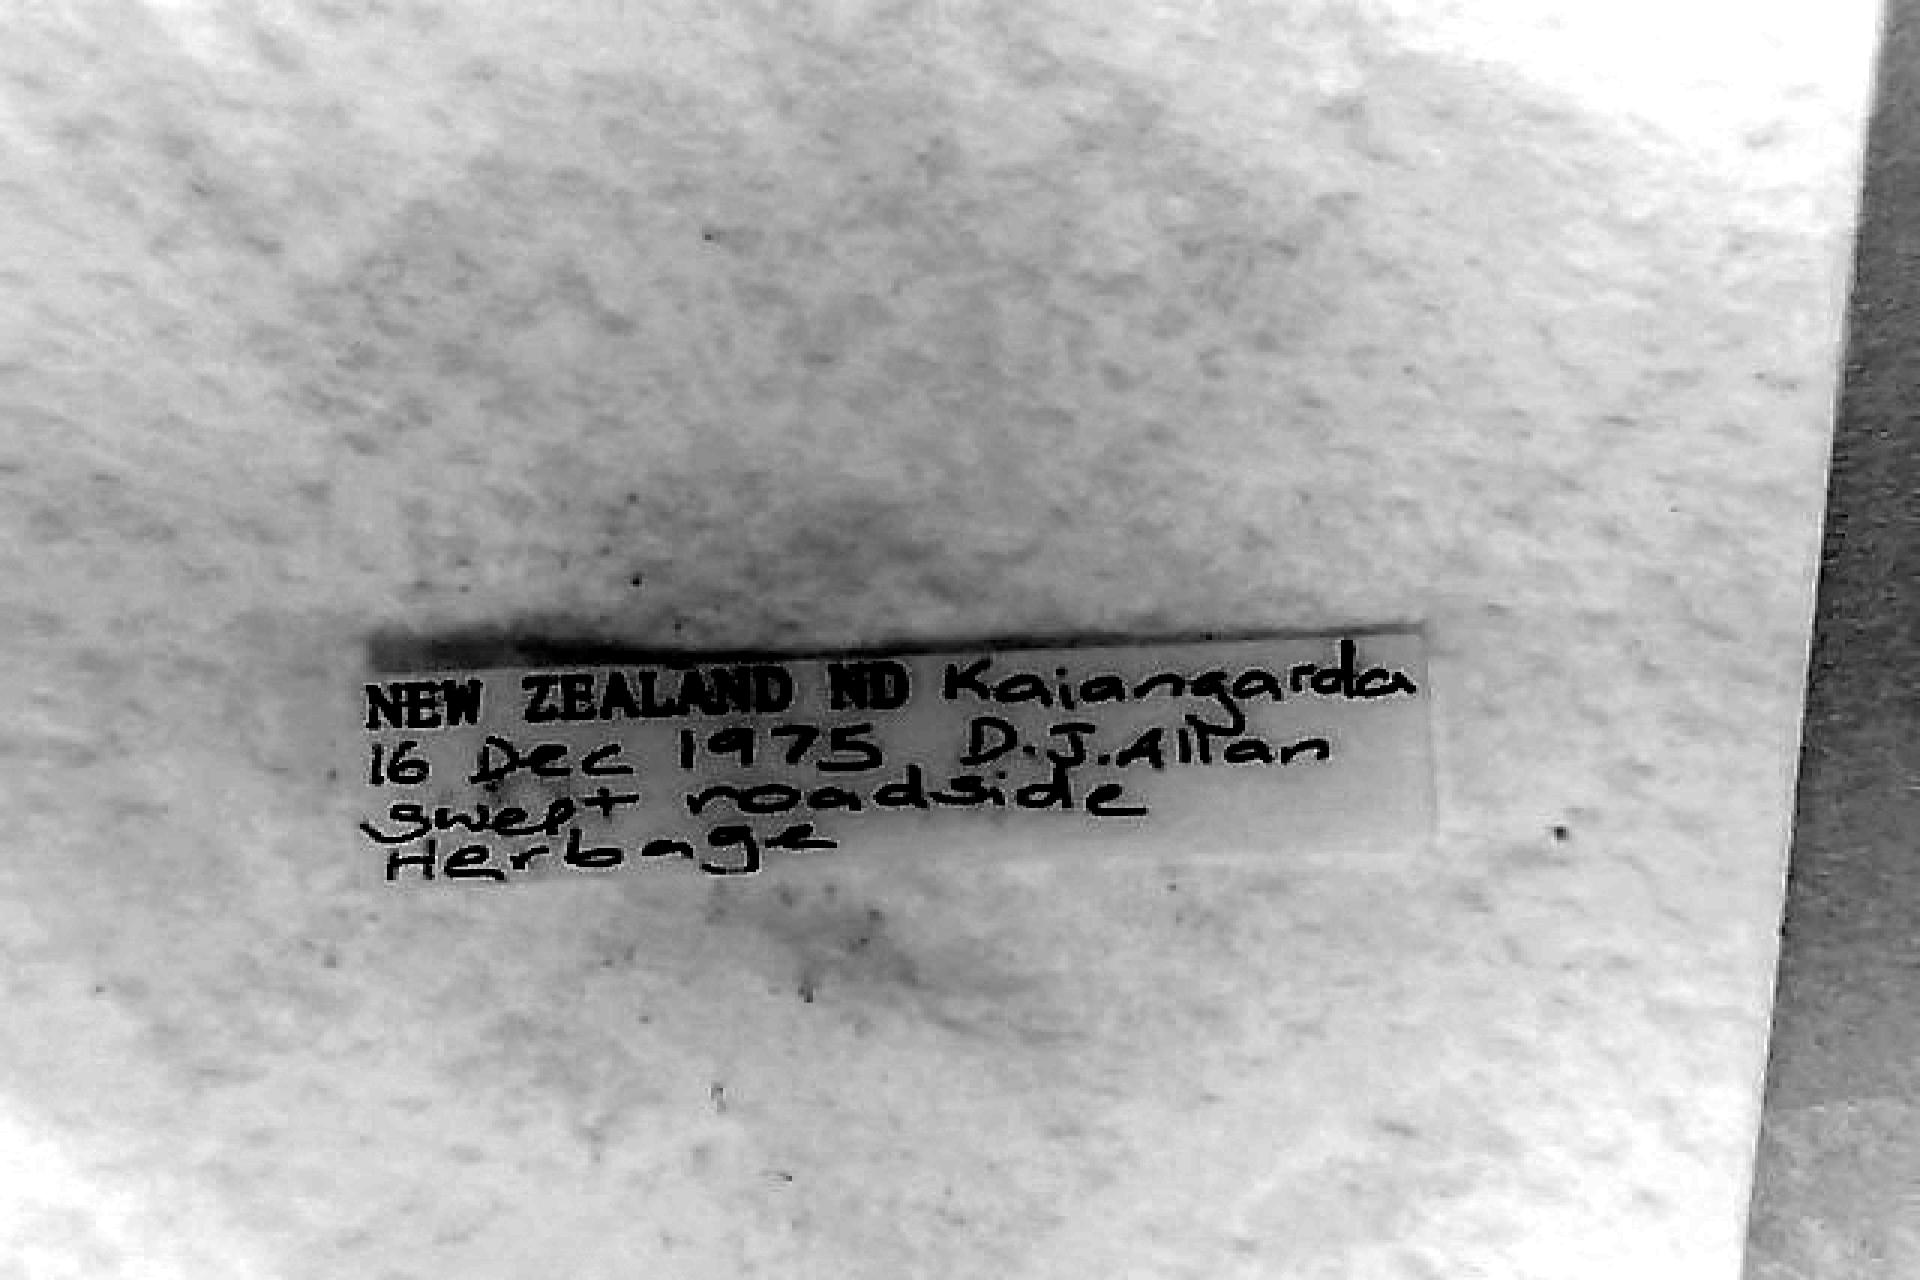 NEW ZEALAND ND Kaiangarda
16 Dec 1975 D.J.Allan
swept roadside
Herbage